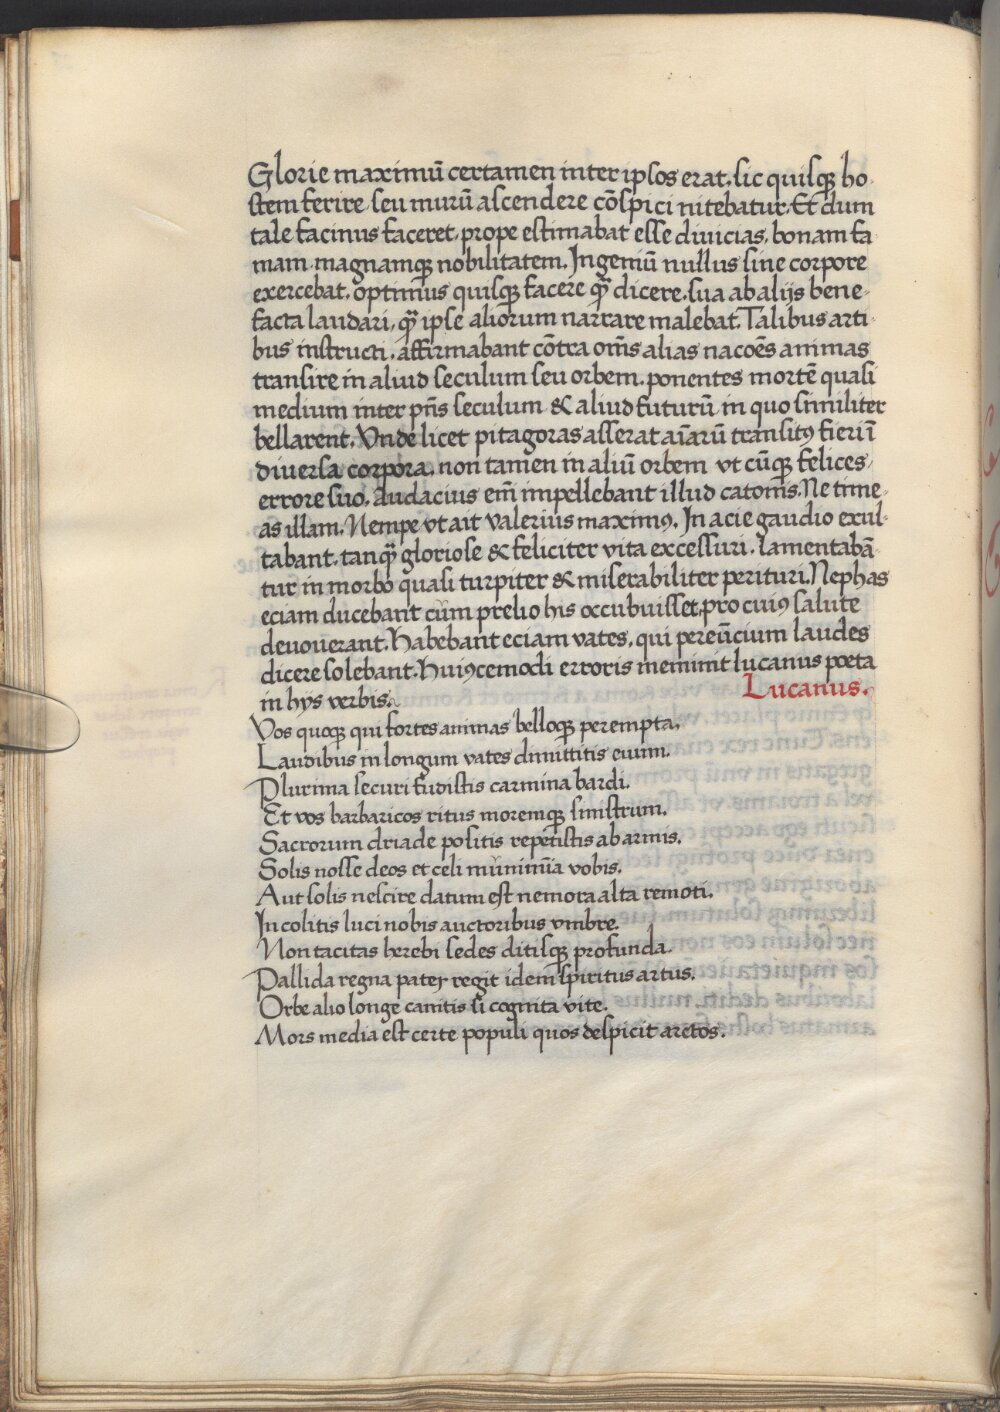 Glorie maximū certamen inter ipsos erat. sic quisqꝫ ho
stem ferire. seu murū ascendere cōspici nitebatur. Et dum
tale facinus faceret. prope estimabat esse diuicias. bonam fa
mam. magnamqꝫ nobilitatem. Ingeniū nullus sine corpore
exercebat. optimus quisqꝫ facere qꝫ̄ dicere. sua ab alijs bene-
facta laudari, qꝫ̄ ipse aliorum narrare malebat. Talibus arti
bus instructi. affirmabant cōtra om̄s alias nacoēs animas
transire in aliud seculum seu orbem. ponentes mortē quasi
medium inter pn̄s seculum & aliud futurū in quo similiter
bellarent. Vnde licet pitagoras asserat aīarū transitꝰ fieri ī
diuersa corpora. non tamen in aliū orbem vt cūqꝫ felices
errore suo. audacius em̄ impellebant illud catonis. Ne time
as illam. Nempe vt ait valerius maximꝰ. In acie gaudio exul-
tabant. tanqꝫ̄ gloriose & feliciter vita excessuri. lamentabā
tur in morbo quasi turpiter & miserabiliter perituri. Nephas
eciam ducebant cum prelio his occubuisset. pro cuiꝰ salute
deuouerant. Habebant eciam vates, qui pereūcium laudes
dicere solebant. Huiꝰcemodi erroris meminit lucanus poeta
in hys verbis. Lucanus.
Vos quoqꝫ qui fortes animas belloqꝫ perempta.
Laudibus in longum vates dimittitis euum.
Plurima securi fudistis carmina bardi.
Et vos barbaricos ritus moremqꝫ sinistrum.
Sacrorum driade positis repetistis ab armis.
Solis nosse deos et celi numina vobis.
Aut solis nescire datum est nemora alta remoti.
Incolitis luci nobis auctoribus vmbre.
Non tacitas herebi sedes ditisqꝫ profunda.
Pallida regna pater regit idem spiritus artus.
Orbe alio longe canitis si cognita vite.
Mors media est certe populi quos despicit arctos.